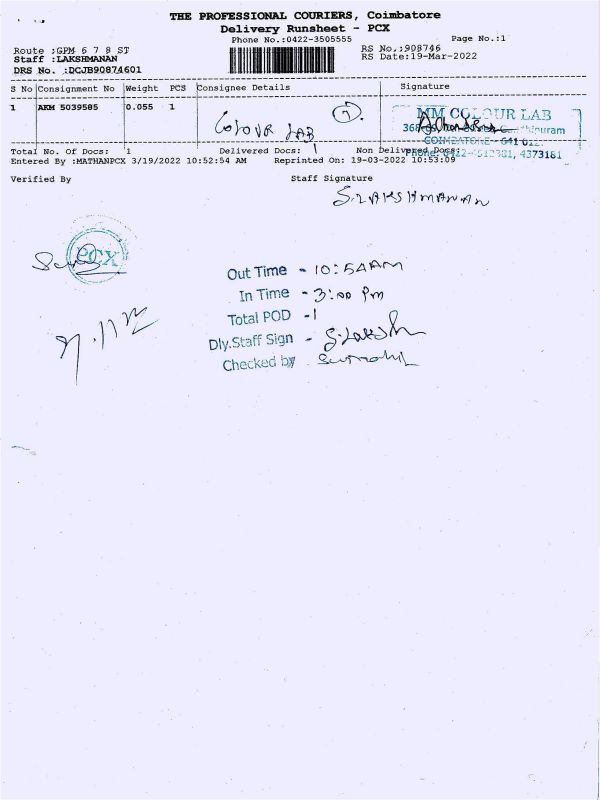 THE PROFESSIONAL COURIERS, Coimbatore
Delivery Runsheet - PCX
Phone No.:0422-3505555
Page No.:1
Route :GPM 6 7 8 ST
RS No.:908746
Staff :LAKSHMANAN
RS Date:19-Mar-2022
DRS No. :DCJB90874601
S No Consignment No Weight PCS Consignee Details Signature
1 AKM 5039585 0.055 1
COLOUR LAB 7
MM COLOUR LAB
COIMBATORE - 641 012.
Phone: 0422- 4373181
Total No. Of Docs: 1 Delivered Docs: 1 Non Delivered Docs:
Entered By :MATHANPCX 3/19/2022 10:52:54 AM Reprinted On: 19-03-2022 10:53:09
Verified By Staff Signature
S.LAKSHMANAN
PCX
Out Time - 10:54AM
In Time - 3:00 Pm
Total POD - 1
Dly.Staff Sign - S.Laksh
Checked by